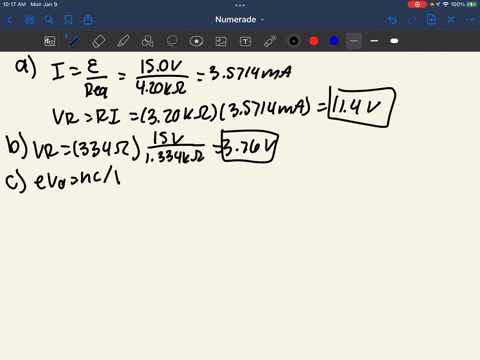 10:17 AM Mon Jan 9
100%
Numerade
a) I = ε/Req = 15.0V/4.20kΩ = 3.5714mA
VR = RI = (3.20kΩ)(3.5714mA) = 11.4 V
b) VR = (334Ω) 15V/1.334kΩ = 3.76V
c) eVo = hc/